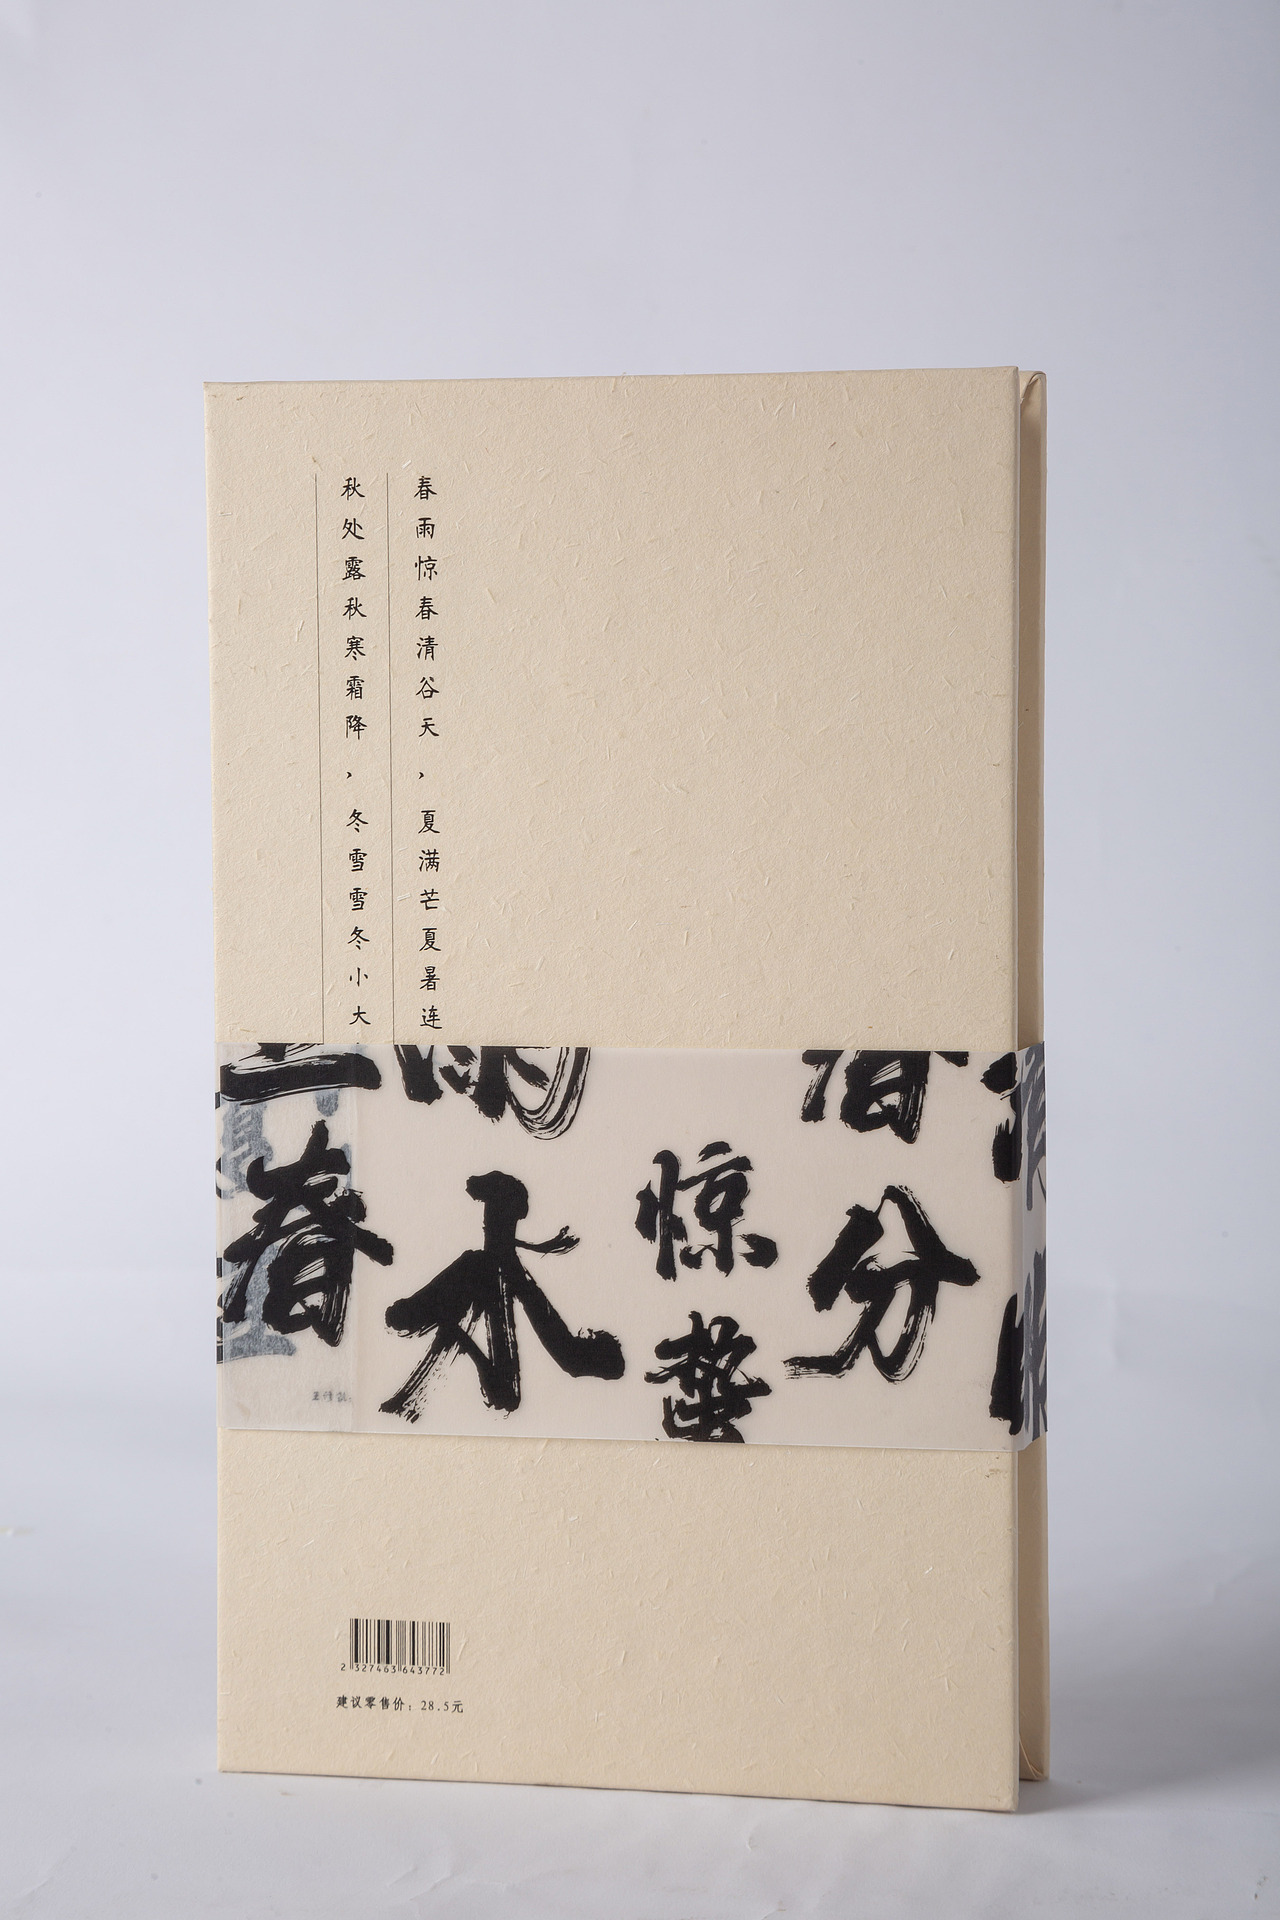 春雨惊春清谷天，夏满芒夏暑连
秋处露秋寒霜降，冬雪雪冬小大
春
雨水
惊蛰
春分
2 327463 643772
建议零售价：28.5元